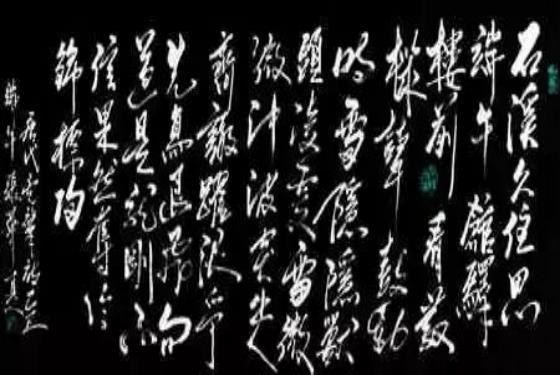 石溪久住思
端午館驛
樓前看發
機鼙鼓動
時雷隱隱獸
頭凌處雪微
微沖波突出人
齊譀躍浪爭
先鳥退飛向
道是龍剛不
信果然奪得
錦標歸
唐代盧肇詩
端午